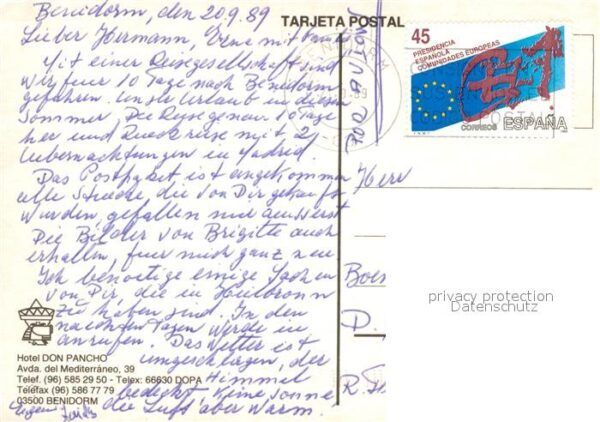 Benidorm, den 20.9.89
TARJETA POSTAL
Lieber Hermann, Erna mit
Mit einer Reisegesellschaft sind
wir fuer 10 Tage nach Benidorm
gefahren. Unser Urlaub in diesem
Sommer. Die Reise genau 10 Tage
her und Rueckreise mit 2
Uebernachtungen in Madrid.
Das Postpaket ist angekommen
alle Stuecke die von Dir gekauft
wurden, gefallen mir aeusserst
Die Bilder von Brigitte auch
erhalten, fuer mich ganz neu
Ich benoetige einige Sachen
von Dir, die in Heilbronn
zu haben sind. In den
nachsten Tagen werde ich
anrufen. Das Wetter ist
umgeschlagen, der
Himmel
bedeckt. Keine Sonne
die Luft aber warm.
Hotel DON PANCHO
Avda. del Mediterráneo, 39
Telef. (96) 585 29 50 - Telex: 66630 DOPA
Telefax (96) 586 77 79
03500 BENIDORM
45
PRESIDENCIA
ESPAÑOLA
COMUNIDADES EUROPEAS
CORREOS ESPAÑA
Herr
D.
privacy protection
Datenschutz